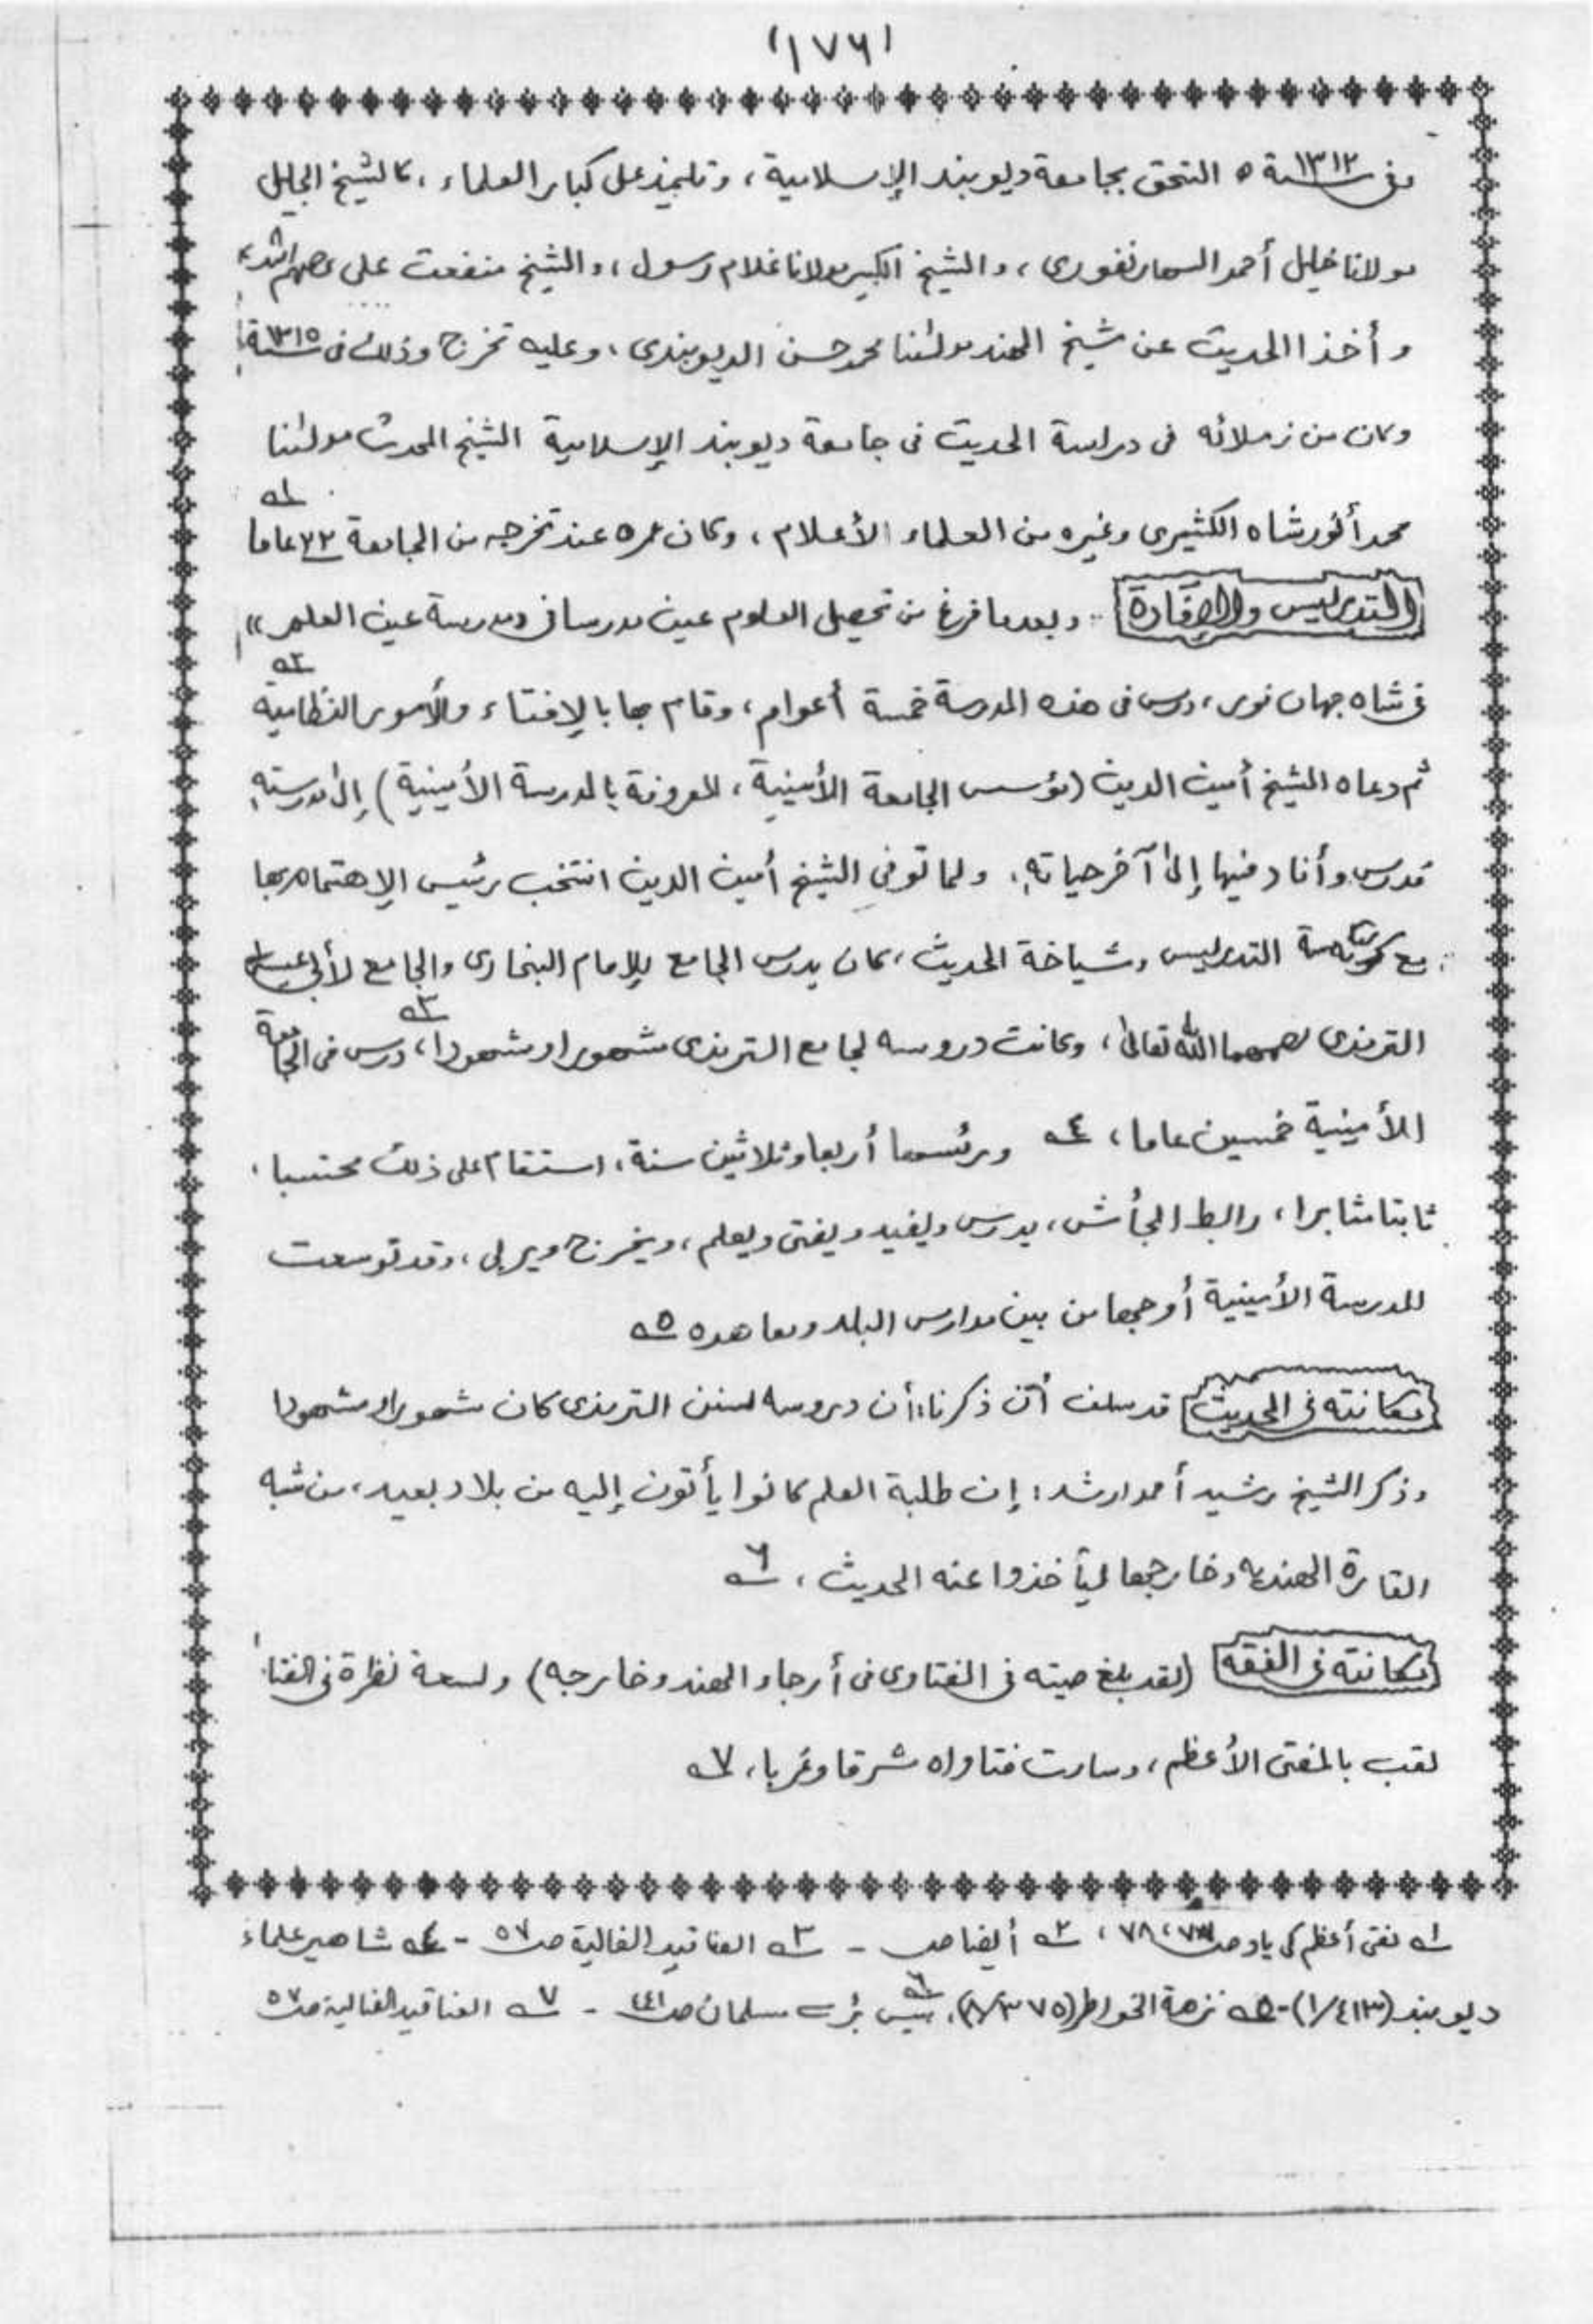 (١٧٦)
وفى سنة ١٣١٢ه التحق بجامعة ديوبند الإسلامية، وتلمذ على كبار العلماء، كالشيخ الجليل
مولانا خليل أحمد السهارنفورى، والشيخ الكبير مولانا غلام رسول، والشيخ منفعت على رحمهم الله،
وأخذ الحديث عن شيخ الهند مولٰنا محمد حسن الديوبندى، وعليه تخرج وذلك فى سنة ١٣١٥
وكان من زملائه فى دراسة الحديث فى جامعة ديوبند الإسلامية الشيخ المحدث مولٰنا
محمد أنور شاه الكشيرى وغيره من العلماء الأعلام، وكان عمره عند تخرجه من الجامعة ٢٢ عاما ١ه
التدريس والإفادة وبعد ما فرغ من تحصيل العلوم عين مدرسا فى ومدرسة عين العلم»
فى شاه جهان فور، درس فى هذه المدرسة خمسة أعوام، وقام بها بالإفتاء والأمور النظامية ٢ه
ثم دعاه الشيخ أمين الدين (مؤسس الجامعة الأمينية، المعروفة بالمدرسة الأمينية) إلى مدرسته
فدرس وأفاد فيها إلى آخر حياته، ولما توفي الشيخ أمين الدين انتخب رئيس الإهتمام بها
مع التدريس وشياخة الحديث، كان يدرس الجامع للإمام البخارى والجامع لأبى عيسى
الترمذى رحمهما الله تعالىٰ، وكانت دروسه لجامع الترمذى مشهورا ومشهودا، ٣ه درس فى الجامعة
الأمينية خمسين عاما، ٤ه ورئسها أربعا وثلاثين سنة، استقام على ذلك محتسبا،
ثابتا مثابرا، رابط الجأش، يدرس ويفيد ويفتى ويعلم، ويخرج ويربى، وقد توسعت
المدرسة الأمينية أوجها من بين مدارس البلد ومعاهده ٥ه
مكانته فى الحديث قد سلف أن ذكرنا: أن دروسه لسنن الترمذى كان مشهورا ومشهودا
وذكر الشيخ رشيد أحمد ارشد: إن طلبة العلم كانوا يأتون إليه من بلاد بعيد، من شبه
القارة الهنديه وخارجها ليأخذوا عنه الحديث، ٦ه
مكانته فى الفقه (لقد بلغ صيته فى الفتاوى فى أرجاء الهند وخارجه) ولسعة نظرة فى الفتا
لقب بالمفتى الأعظم، وسارت فتاواه شرقا وغربا، ٧ه
١ه مفتى أعظم كى ياد ص ٧٣، ٧٨، ٢ه أيضا ص - ٣ه العناقيد الغالية ص ٥٧ - ٤ه مشاهير علماء
ديوبند (١/٤١٣)- ٥ه نزهة الخواطر (٨/٣٧٥)، ٦ه بيس بڑے مسلمان ص ٤٤١ - ٧ه العناقيد الغالية ص ٥٧